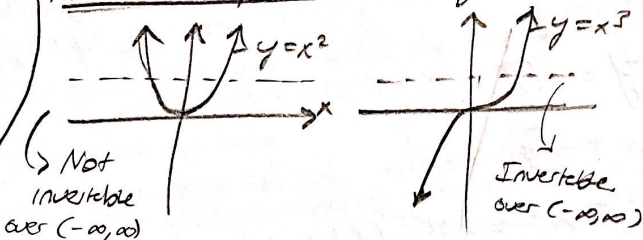 y=x²
y=x³
x
Not
invertible
over (-∞,∞)
Invertible
over (-∞,∞)